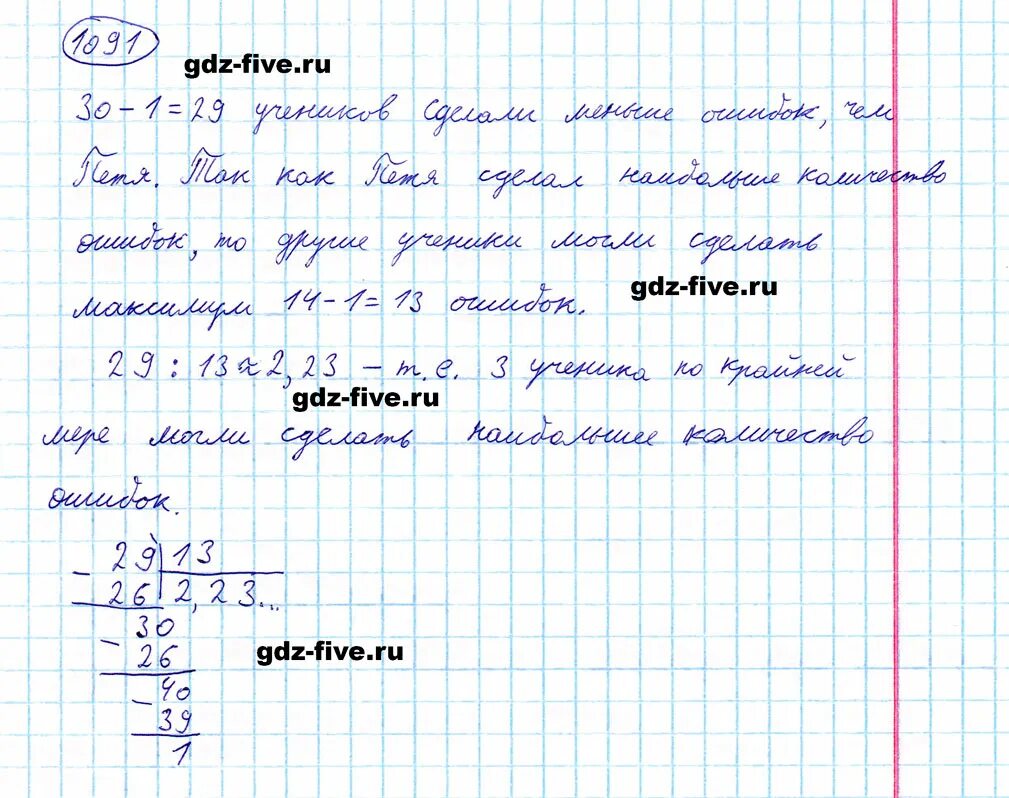 1091
gdz-five.ru
30 - 1 = 29 учеников сделали меньше ошибок, чем
Петя. Так как Петя сделал наибольше количество
ошибок, то другие ученики могли сделать
gdz-five.ru
максимум 14 - 1 = 13 ошибок.
29 : 13 ≈ 2,23 – т.е. 3 ученика по крайней
gdz-five.ru
мере могли сделать наибольшее количество
ошибок.
- 29 | 13
26 | 2,23...
- 30
26
gdz-five.ru
- 40
39
1